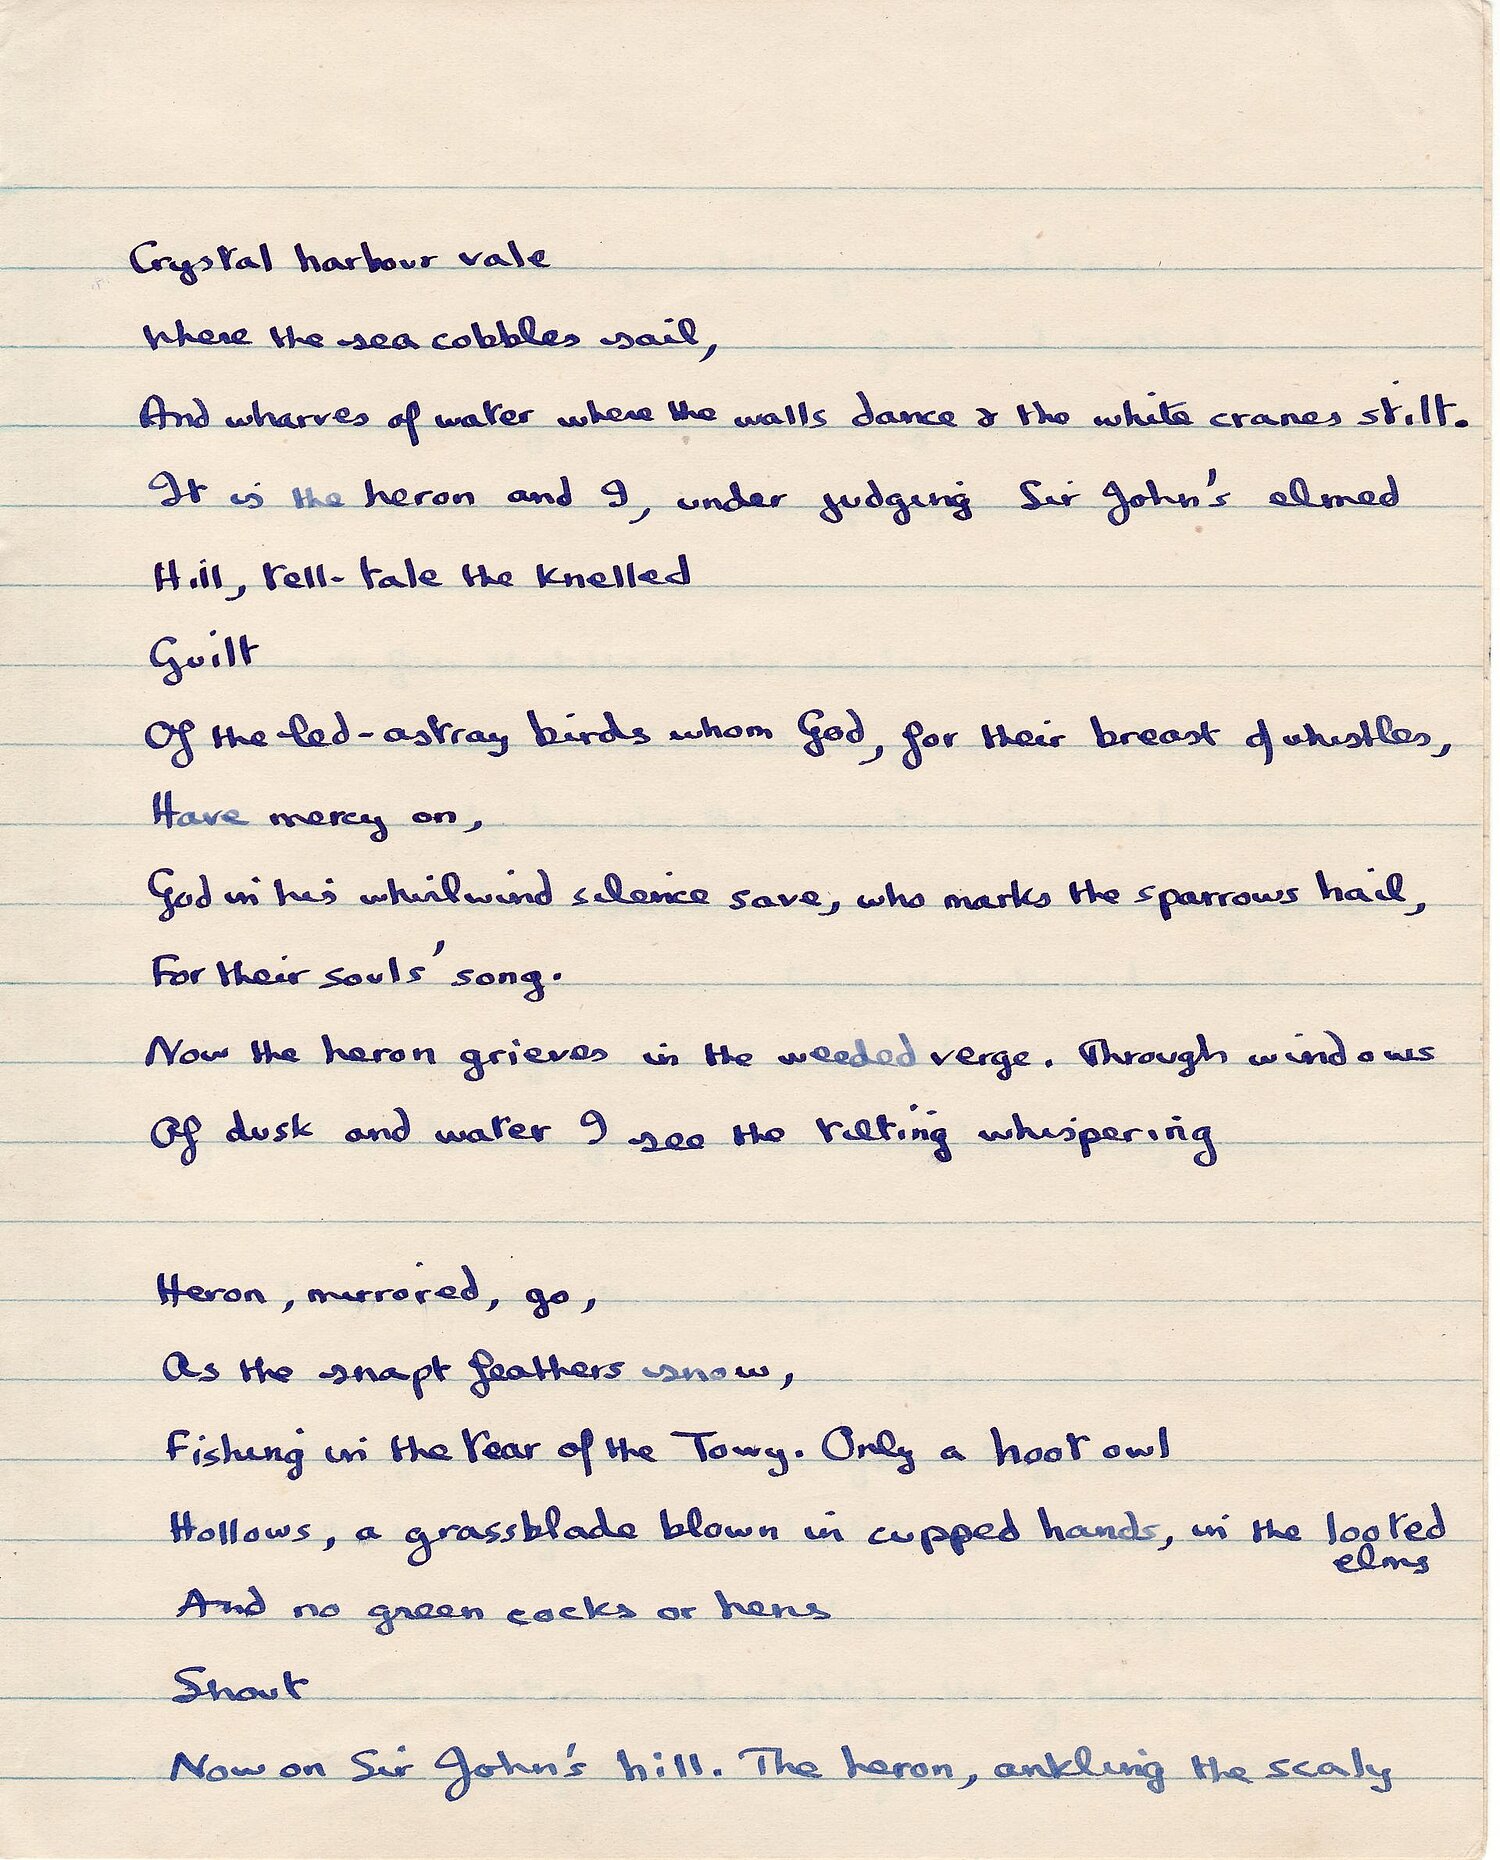 Crystal harbour vale
Where the sea cobbles sail,
And wharves of water where the walls dance & the white cranes stilt.
It is the heron and I, under judging Sir John's elmed
Hill, tell-tale the knelled
Guilt
Of the led-astray birds whom God, for their breast of whistles,
Have mercy on,
God in his whirlwind silence save, who marks the sparrows hail,
For their souls' song.
Now the heron grieves in the weeded verge. Through windows
Of dusk and water I see the tilting whispering
Heron, mirrored, go,
As the snapt feathers snow,
Fishing in the tear of the Towy. Only a hoot owl
Hollows, a grassblade blown in cupped hands, in the looted
elms
And no green cocks or hens
Shout
Now on Sir John's hill. The heron, ankling the scaly